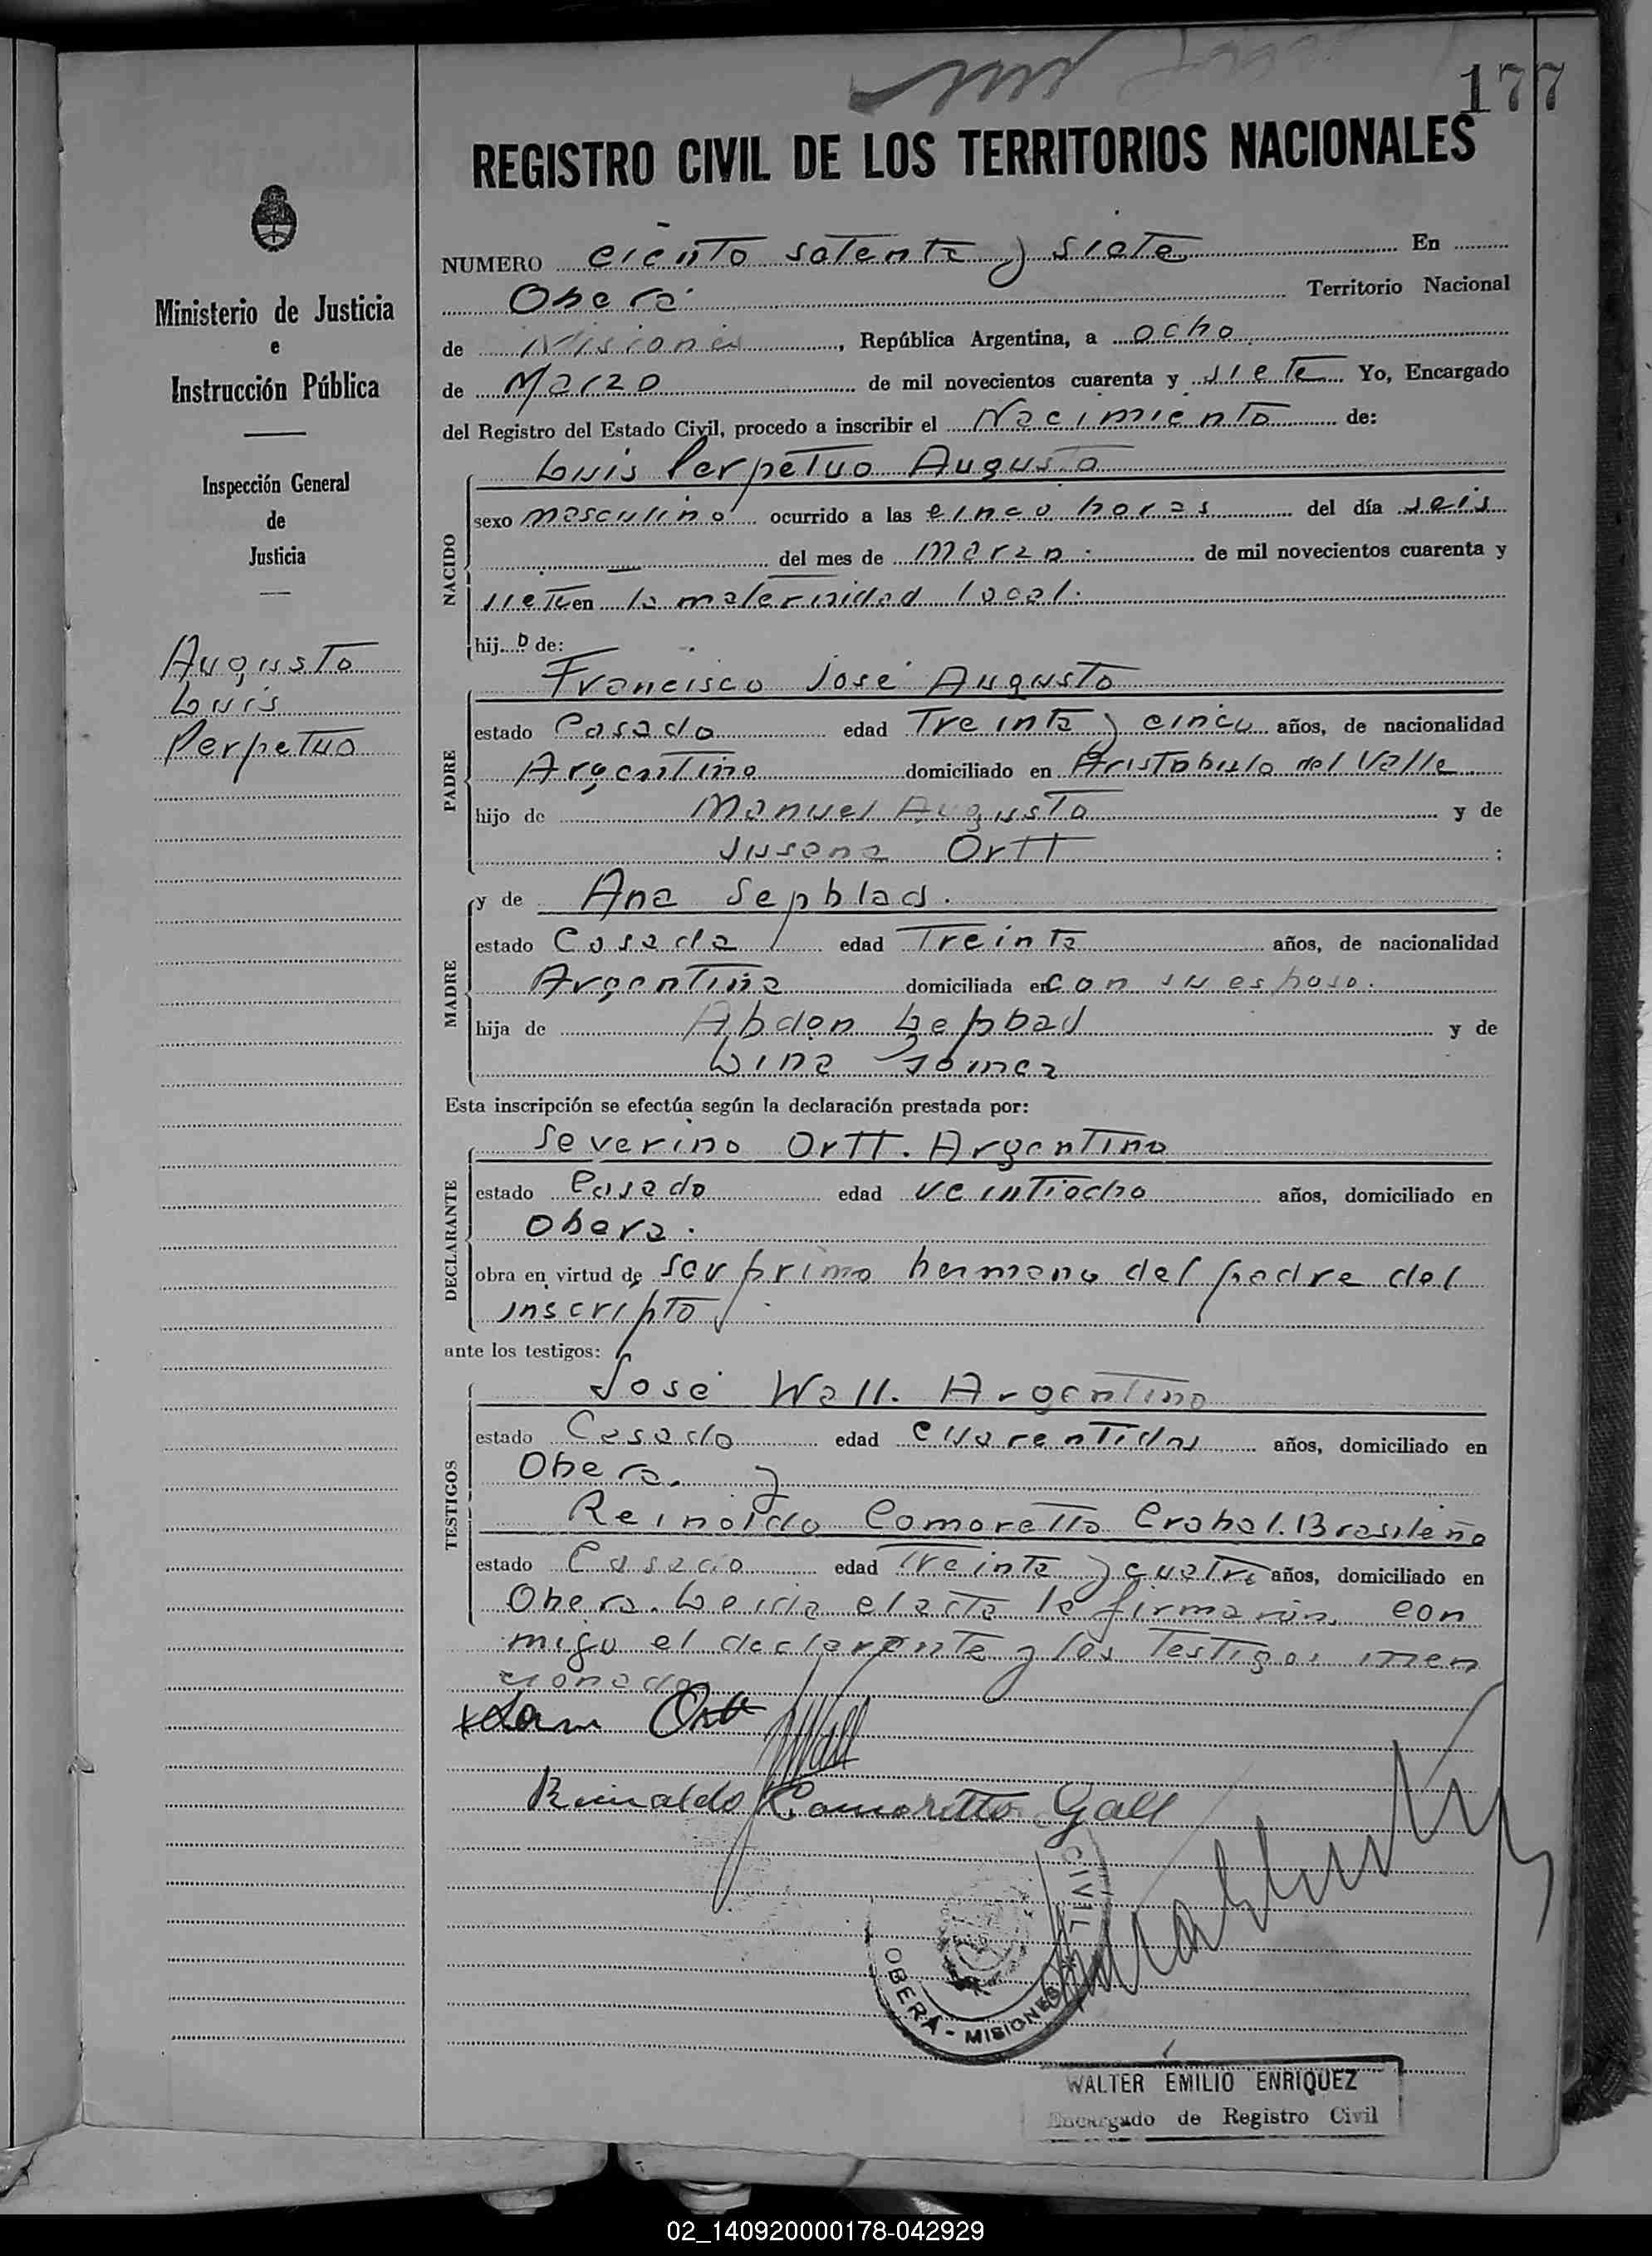 177
REGISTRO CIVIL DE LOS TERRITORIOS NACIONALES
Ministerio de Justicia
e
Instrucción Pública
Inspección General
de
Justicia
Augusto
Luis
Perpetuo
NUMERO ciento setenta y siete En
Oberá Territorio Nacional
de Misiones, República Argentina, a ocho
de Marzo de mil novecientos cuarenta y siete Yo, Encargado
del Registro del Estado Civil, procedo a inscribir el Nacimiento de:
NACIDO
Luis Perpetuo Augusto
sexo masculino ocurrido a las cinco horas del día seis
del mes de marzo de mil novecientos cuarenta y
siete en la maternidad local.
hijo de:
PADRE
Francisco José Augusto
estado Casado edad Treinta y cinco años, de nacionalidad
Argentino domiciliado en Aristobulo del Valle
hijo de Manuel Augusto y de
Susana Ortt ;
MADRE
y de Ana Sepblad.
estado Casada edad Treinta años, de nacionalidad
Argentina domiciliada en con su esposo.
hija de Abdon Lepbad y de
Lina Gomez
Esta inscripción se efectúa según la declaración prestada por:
DECLARANTE
Severino Ortt. Argentino
estado Casado edad veintiocho años, domiciliado en
Obera.
obra en virtud de ser primo hermano del padre del
inscripto
ante los testigos:
TESTIGOS
José Wall. Argentino
estado Casado edad cuarentidos años, domiciliado en
Obera. y
Reinoldo Comoretto Grahal. Brasileño
estado Casado edad Treinta y cuatro años, domiciliado en
Obera. Leida el acta la firmaron con
migo el declarante y los Testigos men
cionados
Ortt
Wall
Reinaldo Camoretto Gall
CIVIL
OBERÁ - MISIONES
WALTER EMILIO ENRIQUEZ
Encargado de Registro Civil
02_140920000178-042929